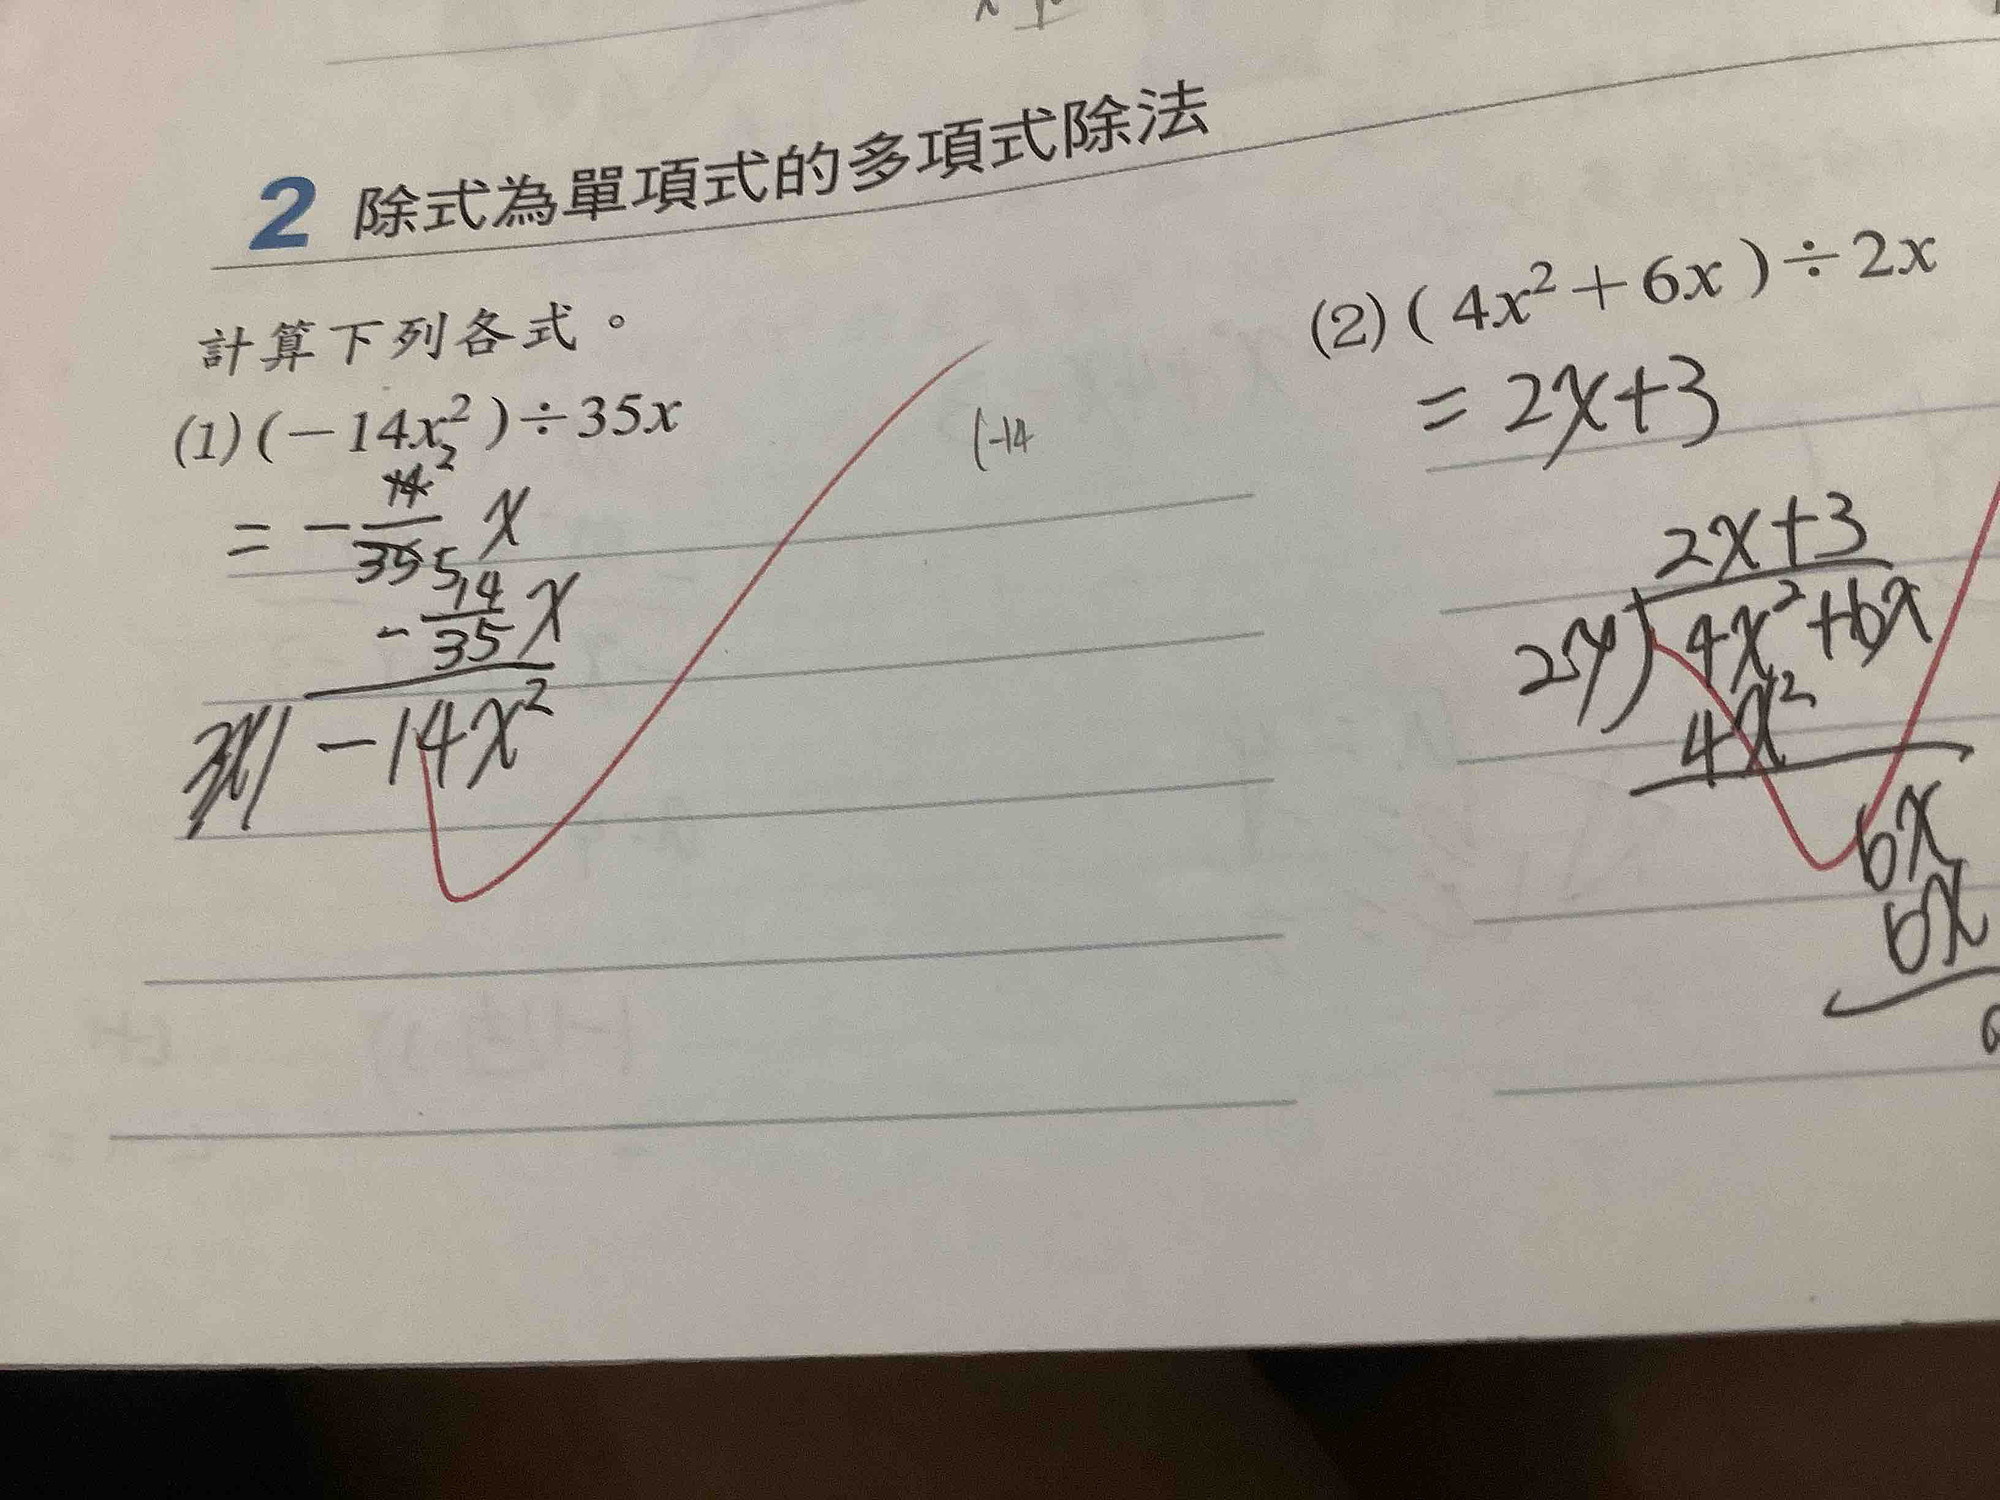 2 除式為單項式的多項式除法
計算下列各式。
(1)(-14x²)÷35x
(-14
2
= -14/35 2/5 x
-14/35 x
-14x²
(2)(4x²+6x)÷2x
= 2x+3
2x+3
2x)4x²+6x
4x²
6x
6x
0